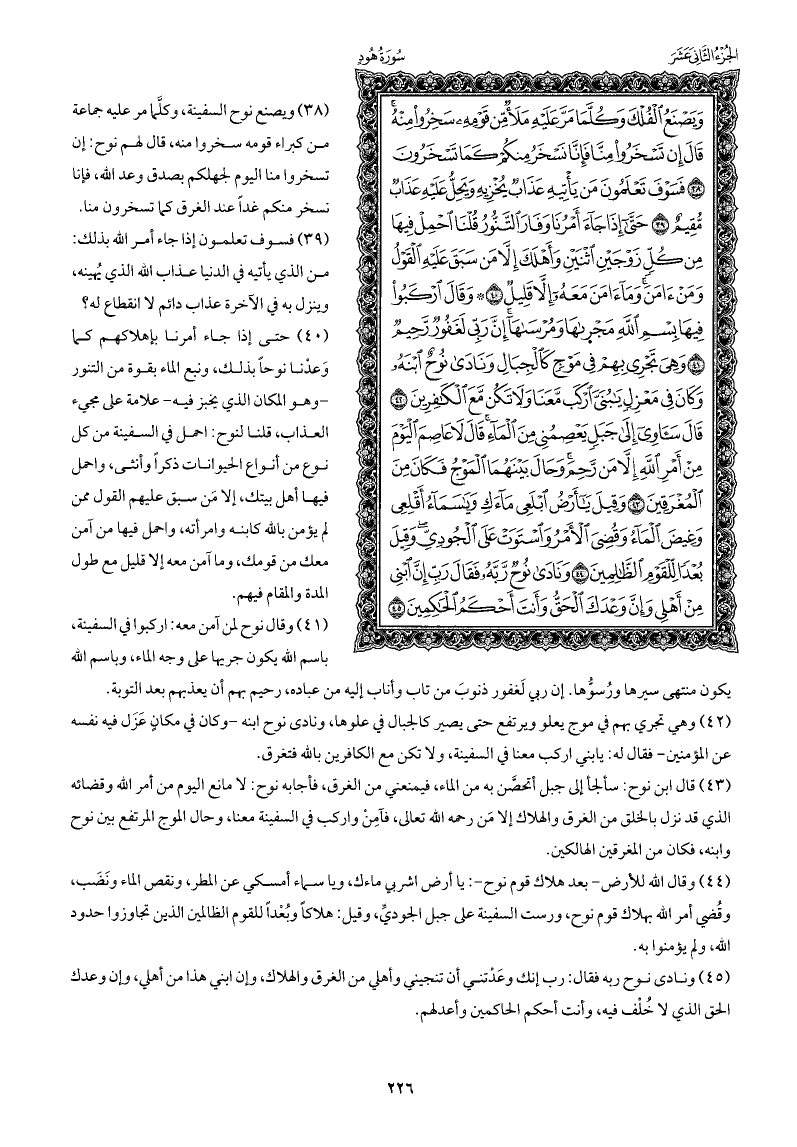 الجُزْءُ الثَّانِي عَشَرَ
سُورَةُ هُودٍ
وَيَصْنَعُ ٱلْفُلْكَ وَكُلَّمَا مَرَّ عَلَيْهِ مَلَأٌ مِّن قَوْمِهِۦ سَخِرُوا۟ مِنْهُ ۚ
قَالَ إِن تَسْخَرُوا۟ مِنَّا فَإِنَّا نَسْخَرُ مِنكُمْ كَمَا تَسْخَرُونَ
٣٨ فَسَوْفَ تَعْلَمُونَ مَن يَأْتِيهِ عَذَابٌ يُخْزِيهِ وَيَحِلُّ عَلَيْهِ عَذَابٌ
مُّقِيمٌ ٣٩ حَتَّىٰٓ إِذَا جَآءَ أَمْرُنَا وَفَارَ ٱلتَّنُّورُ قُلْنَا ٱحْمِلْ فِيهَا
مِن كُلٍّ زَوْجَيْنِ ٱثْنَيْنِ وَأَهْلَكَ إِلَّا مَن سَبَقَ عَلَيْهِ ٱلْقَوْلُ
وَمَنْ ءَامَنَ ۚ وَمَآ ءَامَنَ مَعَهُۥٓ إِلَّا قَلِيلٌ ٤٠ ۞ وَقَالَ ٱرْكَبُوا۟
فِيهَا بِسْمِ ٱللَّهِ مَجْر۪ىٰهَا وَمُرْسَىٰهَآ ۚ إِنَّ رَبِّى لَغَفُورٌ رَّحِيمٌ
٤١ وَهِىَ تَجْرِى بِهِمْ فِى مَوْجٍ كَٱلْجِبَالِ وَنَادَىٰ نُوحٌ ٱبْنَهُۥ
وَكَانَ فِى مَعْزِلٍ يَـٰبُنَىَّ ٱرْكَب مَّعَنَا وَلَا تَكُن مَّعَ ٱلْكَـٰفِرِينَ ٤٢
قَالَ سَـَٔاوِىٓ إِلَىٰ جَبَلٍ يَعْصِمُنِى مِنَ ٱلْمَآءِ ۚ قَالَ لَا عَاصِمَ ٱلْيَوْمَ
مِنْ أَمْرِ ٱللَّهِ إِلَّا مَن رَّحِمَ ۚ وَحَالَ بَيْنَهُمَا ٱلْمَوْجُ فَكَانَ مِنَ
ٱلْمُغْرَقِينَ ٤٣ وَقِيلَ يَـٰٓأَرْضُ ٱبْلَعِى مَآءَكِ وَيَـٰسَمَآءُ أَقْلِعِى
وَغِيضَ ٱلْمَآءُ وَقُضِىَ ٱلْأَمْرُ وَٱسْتَوَتْ عَلَى ٱلْجُودِىِّ ۖ وَقِيلَ
بُعْدًا لِّلْقَوْمِ ٱلظَّـٰلِمِينَ ٤٤ وَنَادَىٰ نُوحٌ رَّبَّهُۥ فَقَالَ رَبِّ إِنَّ ٱبْنِى
مِنْ أَهْلِى وَإِنَّ وَعْدَكَ ٱلْحَقُّ وَأَنتَ أَحْكَمُ ٱلْحَـٰكِمِينَ ٤٥
(٣٨) ويصنع نوح السفينة، وكلَّما مر عليه جماعة
من كبراء قومه سخروا منه، قال لهم نوح: إن
تسخروا منا اليوم لجهلكم بصدق وعد الله، فإنا
نسخر منكم غداً عند الغرق كما تسخرون منا.
(٣٩) فسوف تعلمون إذا جاء أمر الله بذلك:
من الذي يأتيه في الدنيا عذاب الله الذي يُهينه،
وينزل به في الآخرة عذاب دائم لا انقطاع له؟
(٤٠) حتى إذا جاء أمرنا بإهلاكهم كما
وَعدْنا نوحاً بذلك، ونبع الماء بقوة من التنور
-وهو المكان الذي يخبز فيه- علامة على مجيء
العذاب، قلنا لنوح: احمل في السفينة من كل
نوع من أنواع الحيوانات ذكراً وأنثى، واحمل
فيها أهل بيتك، إلا مَن سبق عليهم القول ممن
لم يؤمن بالله كابنه وامرأته، واحمل فيها من آمن
معك من قومك، وما آمن معه إلا قليل مع طول
المدة والمقام فيهم.
(٤١) وقال نوح لمن آمن معه: اركبوا في السفينة،
باسم الله يكون جريها على وجه الماء، وباسم الله
يكون منتهى سيرها ورُسوُّها. إن ربي لَغفور ذنوبَ من تاب وأناب إليه من عباده، رحيم بهم أن يعذبهم بعد التوبة.
(٤٢) وهي تجري بهم في موج يعلو ويرتفع حتى يصير كالجبال في علوها، ونادى نوح ابنه -وكان في مكانٍ عَزَل فيه نفسه
عن المؤمنين- فقال له: يابني اركب معنا في السفينة، ولا تكن مع الكافرين بالله فتغرق.
(٤٣) قال ابن نوح: سألجأ إلى جبل أتحصَّن به من الماء، فيمنعني من الغرق، فأجابه نوح: لا مانع اليوم من أمر الله وقضائه
الذي قد نزل بالخلق من الغرق والهلاك إلا مَن رحمه الله تعالى، فآمِنْ واركب في السفينة معنا، وحال الموج المرتفع بين نوح
وابنه، فكان من المغرقين الهالكين.
(٤٤) وقال الله للأرض- بعد هلاك قوم نوح-: يا أرض اشربي ماءك، ويا سماء أمسكي عن المطر، ونقص الماء ونَضَب،
وقُضي أمر الله بهلاك قوم نوح، ورست السفينة على جبل الجوديِّ، وقيل: هلاكاً وبُعْداً للقوم الظالمين الذين تجاوزوا حدود
الله، ولم يؤمنوا به.
(٤٥) ونادى نوح ربه فقال: رب إنك وعَدْتني أن تنجيني وأهلي من الغرق والهلاك، وإن ابني هذا من أهلي، وإن وعدك
الحق الذي لا خُلْف فيه، وأنت أحكم الحاكمين وأعدلهم.
٢٢٦